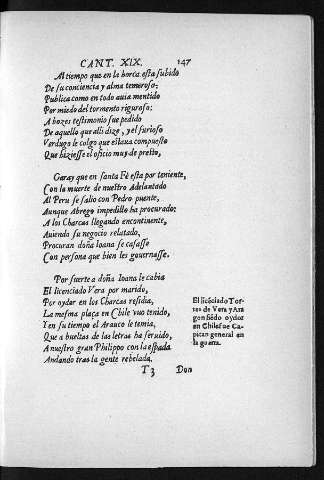 CANT. XIX. 147
Al tiempo que en le horca esta subido
De su conciencia y alma temeroso:
Publica como en todo auia mentido
Por miedo del tormento riguroso:
A bozes testimonio fue pedido
De aquello que alli dize, y el furioso
Verdugo le colgo que estaua compuesto
Que hiziesse el oficio muy de presto,
Garay que en santa Fè esta por teniente,
Con la muerte de nuestro Adelantado
Al Peru se salio con Pedro puente,
Aunque Abrego impedillo ha procurado:
A los Charcas llegando encontinente,
Auiendo su negocio relatado,
Procuran doña Ioana se casasse
Con persona que bien les gouernasse.
Por suerte a doña Ioana le cabia
El licenciado Vera por marido,
Por oydor en los Charcas residia,
La mesma plaça en Chile vuo tenido,
Y en su tiempo el Arauco le temia,
Que a bueltas de las letras ha seruido,
A nuestro gran Philippo con la espada
Andando tras la gente rebelada.
El licēciado Tor-
res de Vera y Ara
gon siēdo oydor
en Chile fue Ca-
pitan general en
la guerra.
T 3 Don